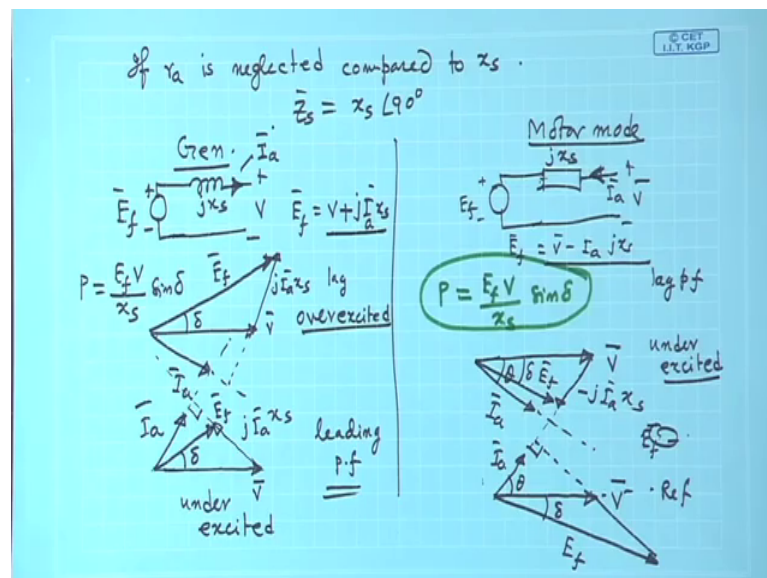 © CET
I.I.T. KGP
If ra is neglected compared to xs.
Z̄s = xs ∠90°
Gen.
Īa
+ +
Ēf jxs V
- -
Ēf = V + jĪa xs
P = Ef V / xs sin δ
Ēf
jĪa xs
lag
overexcited
δ
V̄
Īa
Īa
Ēf
jĪa xs
δ
V̄
leading
p.f
under
excited
Motor mode
jxs
+ +
Ef Īa V̄
-
Ēf = v̄ - Ia jxs
lag pf
P = Ef V / xs sin δ
under
excited
V̄
θ δ Ēf
-jĪa xs
Īa
Ēf
Īa
θ
V̄ · Ref
δ
Ef